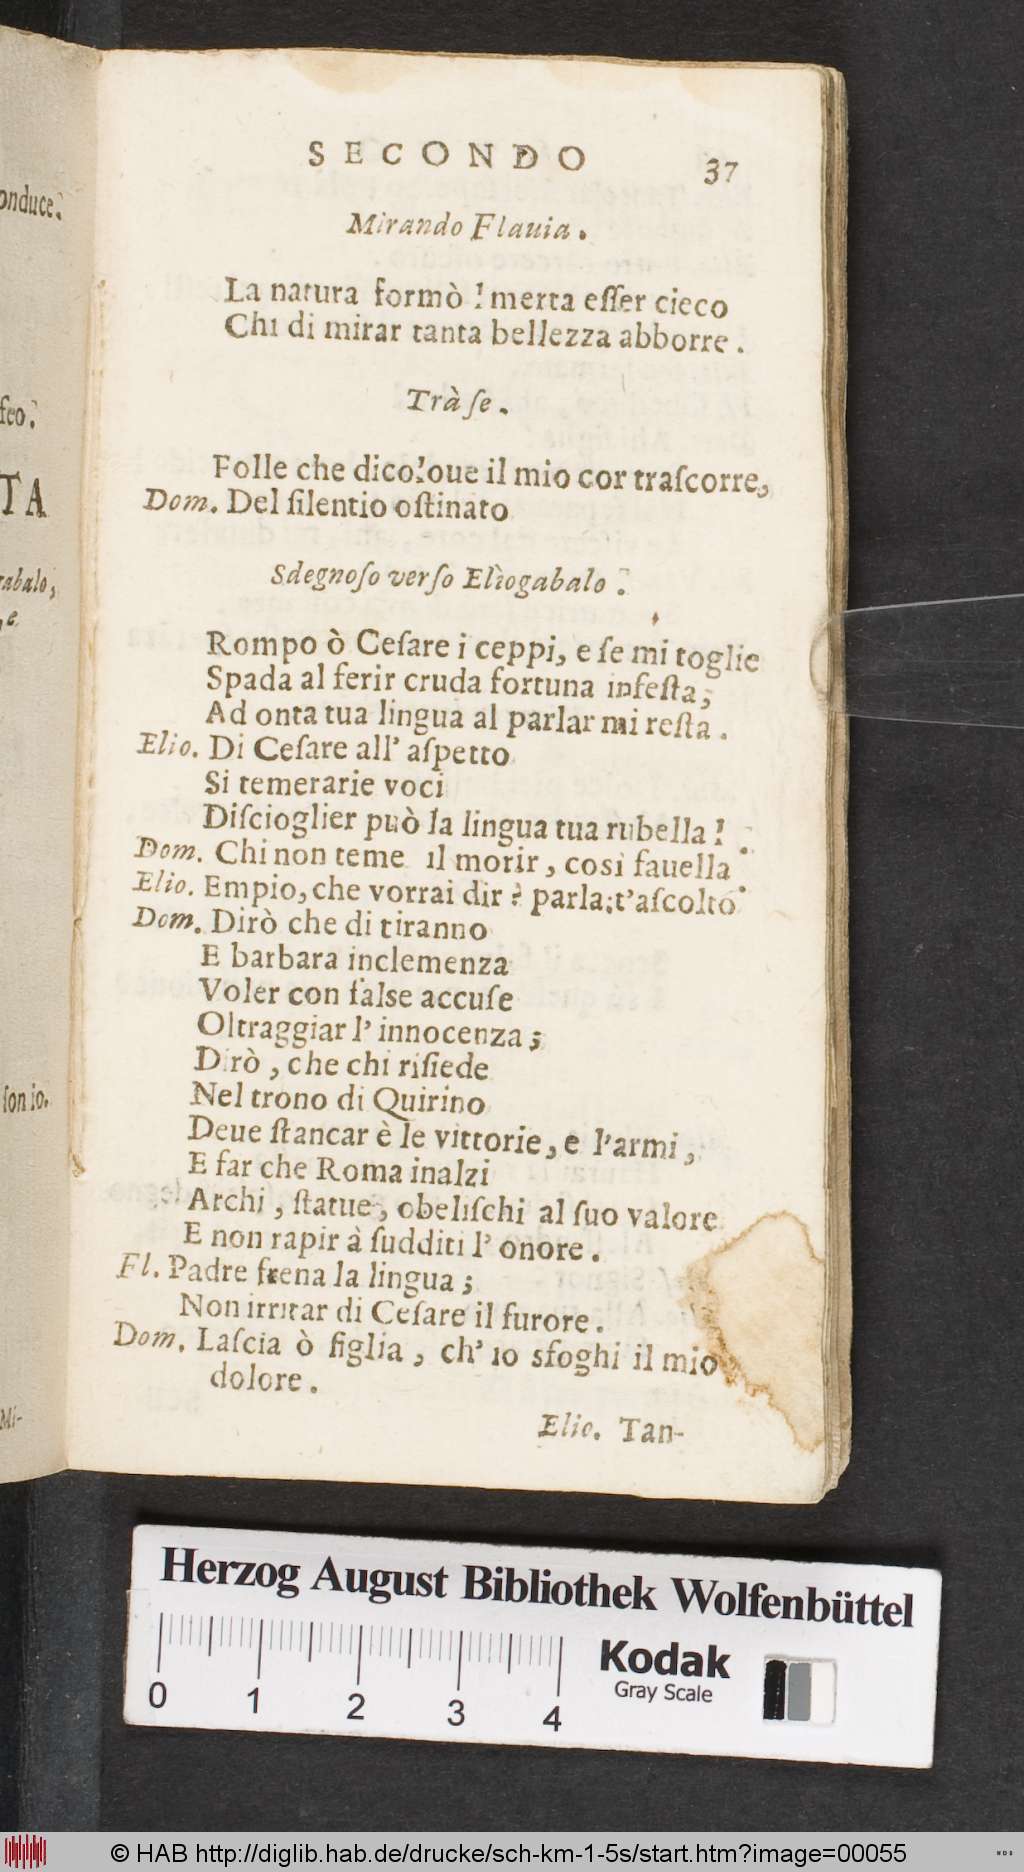 onduce.
feo.
TA
gabalo,
, e
son io.
Mi-
SECONDO 37
Mirando Flauia.
La natura formò! merta eſſer cieco
Chi di mirar tanta bellezza abborre.
Trà ſe.
Folle che dico! oue il mio cor traſcorre,
Dom. Del ſilentio oſtinato
Sdegnoſo verſo Eliogabalo.
Rompo ò Ceſare i ceppi, e ſe mi toglie
Spada al ferir cruda fortuna infeſta;
Ad onta tua lingua al parlar mi reſta.
Elio. Di Ceſare all' aſpetto
Si temerarie voci
Diſcioglier può la lingua tua rubella!
Dom. Chi non teme il morir, cosi fauella.
Elio. Empio, che vorrai dir? parla; t'aſcolto.
Dom. Dirò che di tiranno
E barbara inclemenza
Voler con falſe accuſe
Oltraggiar l' innocenza;
Dirò, che chi riſiede
Nel trono di Quirino
Deue ſtancar è le vittorie, e l'armi,
E far che Roma inalzi
Archi, ſtatue, obeliſchi al ſuo valore
E non rapir à ſudditi l' onore.
Fl. Padre frena la lingua;
Non irritar di Ceſare il furore.
Dom. Laſcia ò figlia, ch' io sfoghi il mio
dolore.
Elio. Tan-
Herzog August Bibliothek Wolfenbüttel
Kodak
Gray Scale
0 1 2 3 4
© HAB http://diglib.hab.de/drucke/sch-km-1-5s/start.htm?image=00055